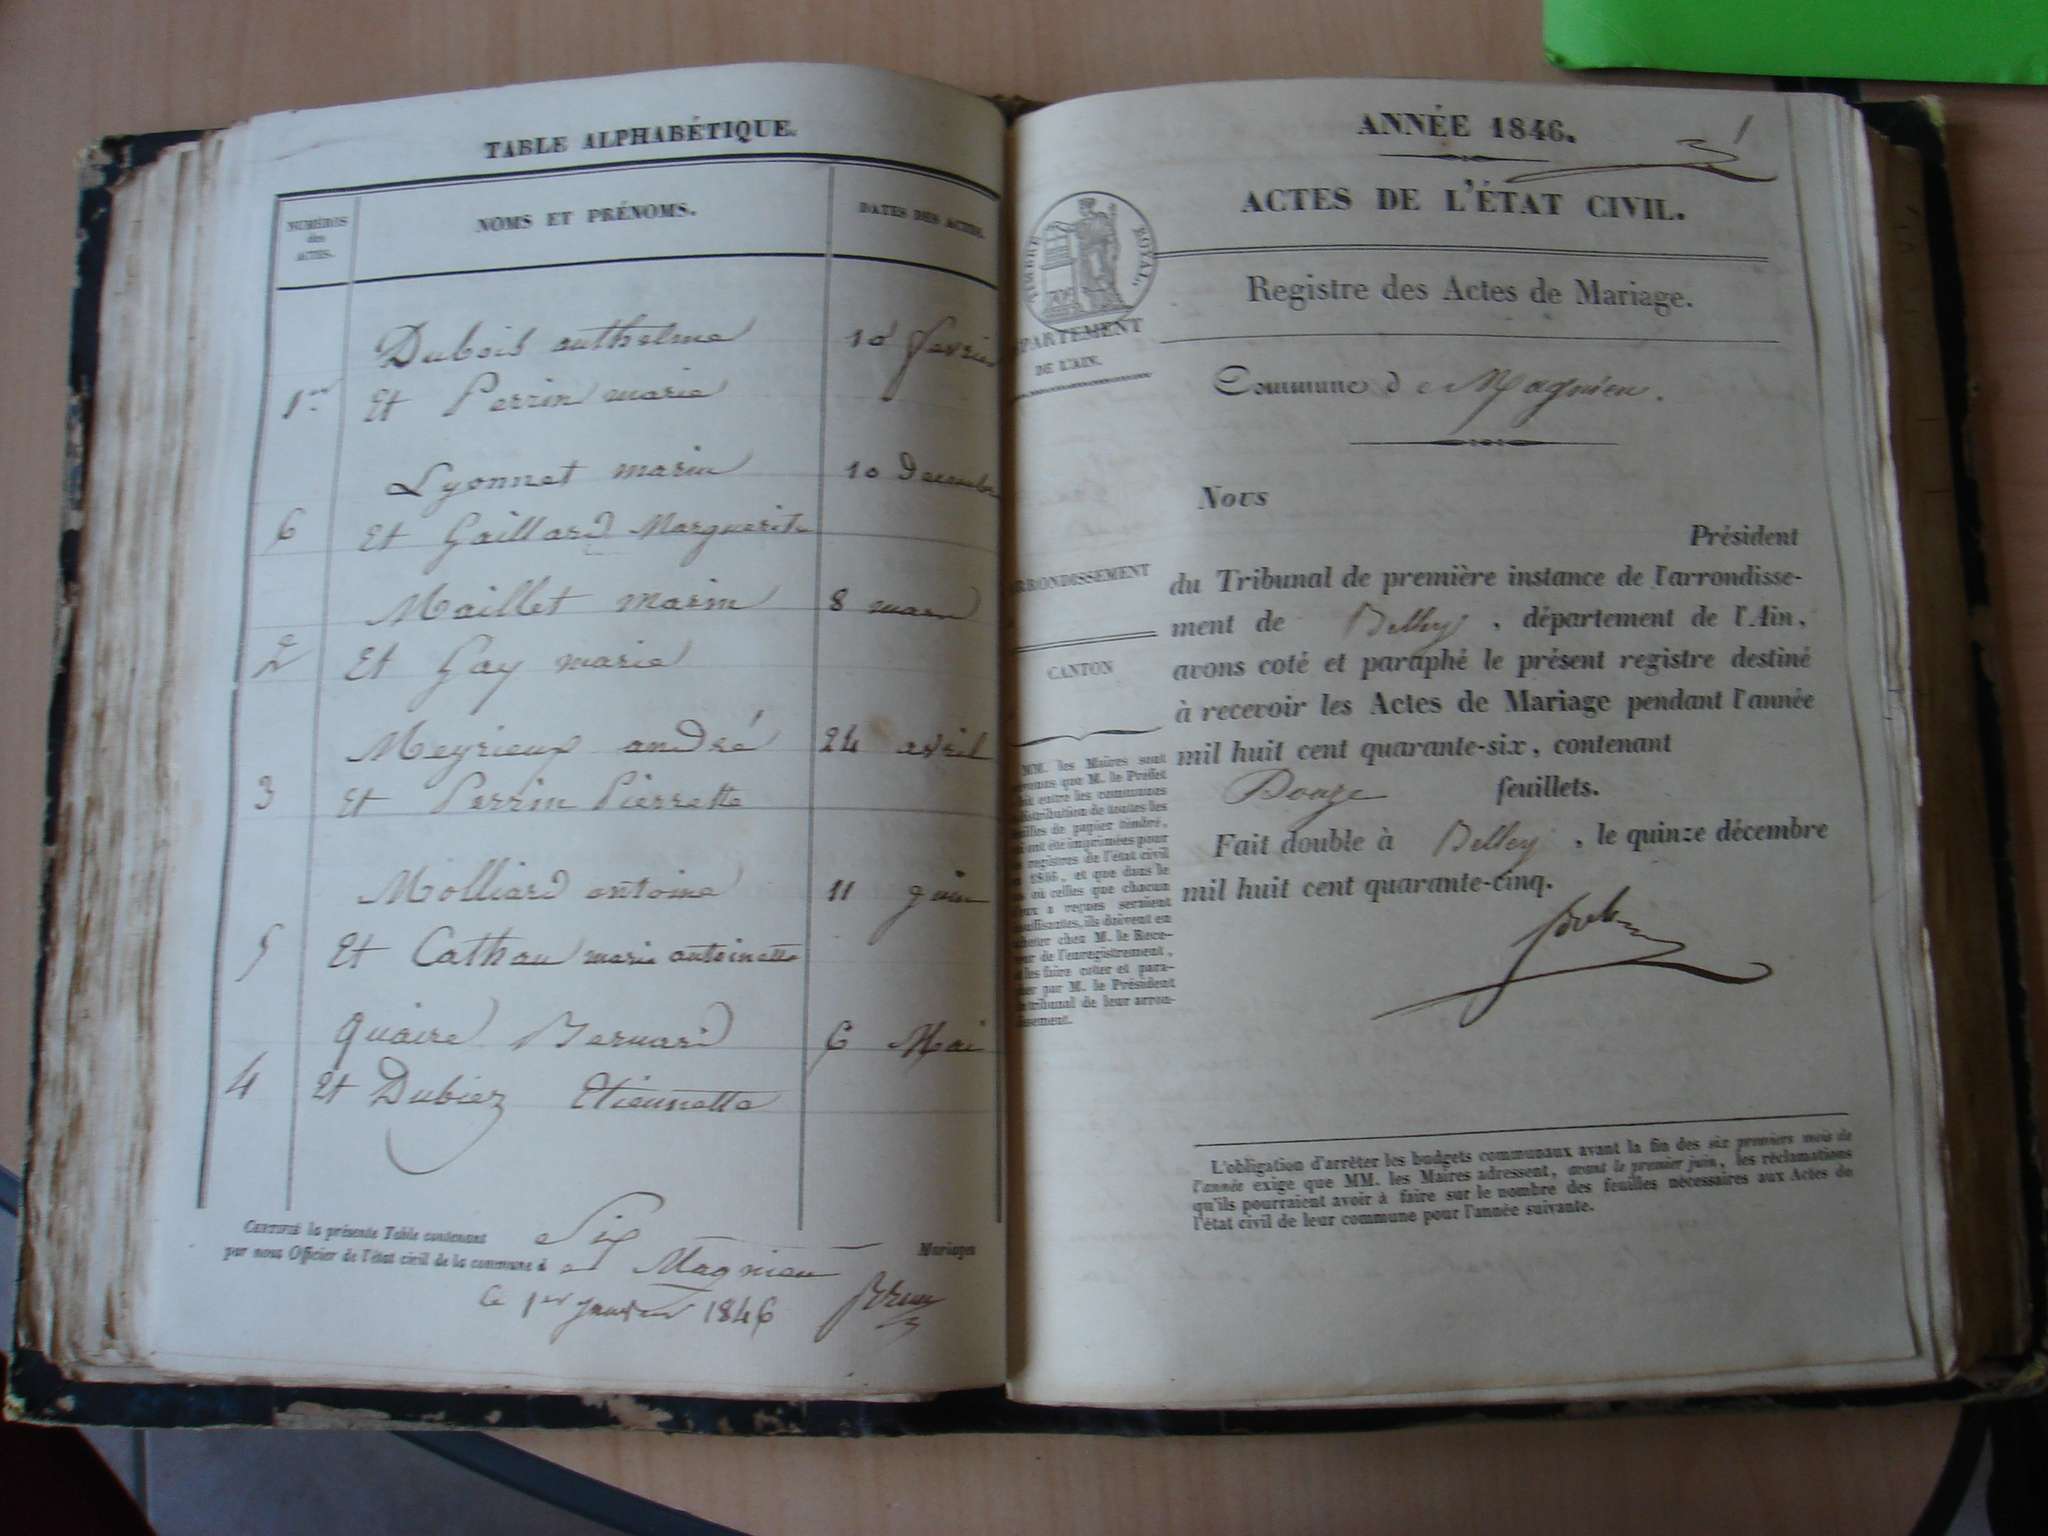 TABLE ALPHABÉTIQUE.
NUMÉROS des ACTES.
NOMS ET PRÉNOMS.
DATES DES ACTES.
Dubois anthelme 10 fevrier
1er Et Perrin marie
Lyonnet marin 10 Decembre
6 Et Gaillard Marguerite
Maillet marin 8 mars
2 Et Gay marie
Meyrieux andré 24 avril
3 Et Perrin Pierrette
Molliard antoine 11 juin
5 Et Cathau marie antoinette
Quaire Bernard 6 Mai
4 Et Dubiez Etiennette
CERTIFIÉ la présente Table contenant Six Mariages
par nous Officier de l'état civil de la commune d e Magnieu
Ce 1er janvier 1846
ANNÉE 1846.
1
ACTES DE L'ÉTAT CIVIL.
TIMBRE ROYAL.
Registre des Actes de Mariage.
DE L'AIN.
Commune d e Magnieu.
Nous
Président
du Tribunal de première instance de l'arrondisse-
ment de Belley, département de l'Ain,
avons coté et paraphé le présent registre destiné
à recevoir les Actes de Mariage pendant l'année
mil huit cent quarante-six, contenant
Douze feuillets.
Fait double à Belley, le quinze décembre
mil huit cent quarante-cinq.
CANTON
MM. les Maires sont
que M. le Préfet
entre les communes
de toutes les
de papier timbré,
ont été imprimées pour
registres de l'état civil
1846, et que dans le
où celles que chacun
a reçues seraient
ils doivent en
chez M. le Rece-
de l'enregistrement,
les faire coter et para-
par M. le Président
tribunal de leur arron-
L'obligation d'arrêter les budgets communaux avant la fin des six premiers mois de
l'année exige que MM. les Maires adressent, avant le premier juin, les réclamations
qu'ils pourraient avoir à faire sur le nombre des feuilles nécessaires aux Actes de
l'état civil de leur commune pour l'année suivante.